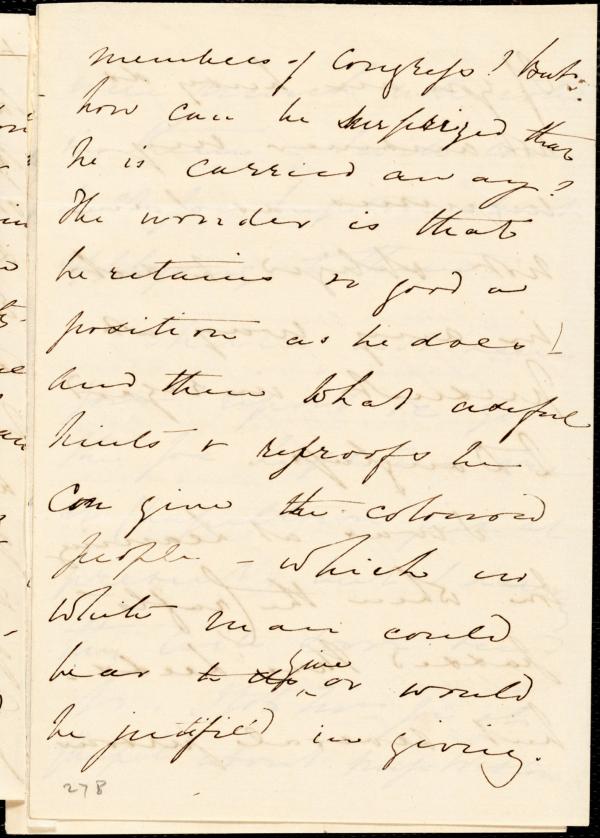 members of Congress? But
how can he be surprized that
he is carried away?
The wonder is that
he retains so good a
position as he does!
And then what useful
hints & reproofs he
can give the coloured
people – which no
white man could
bear to give or would
be justified in giving.
278